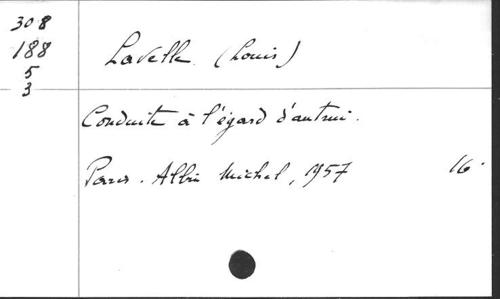 308
188
5
3
Lavelle (Louis)
Conduite à l'égard d'autrui.
Paris. Albin Michel, 1957 16°